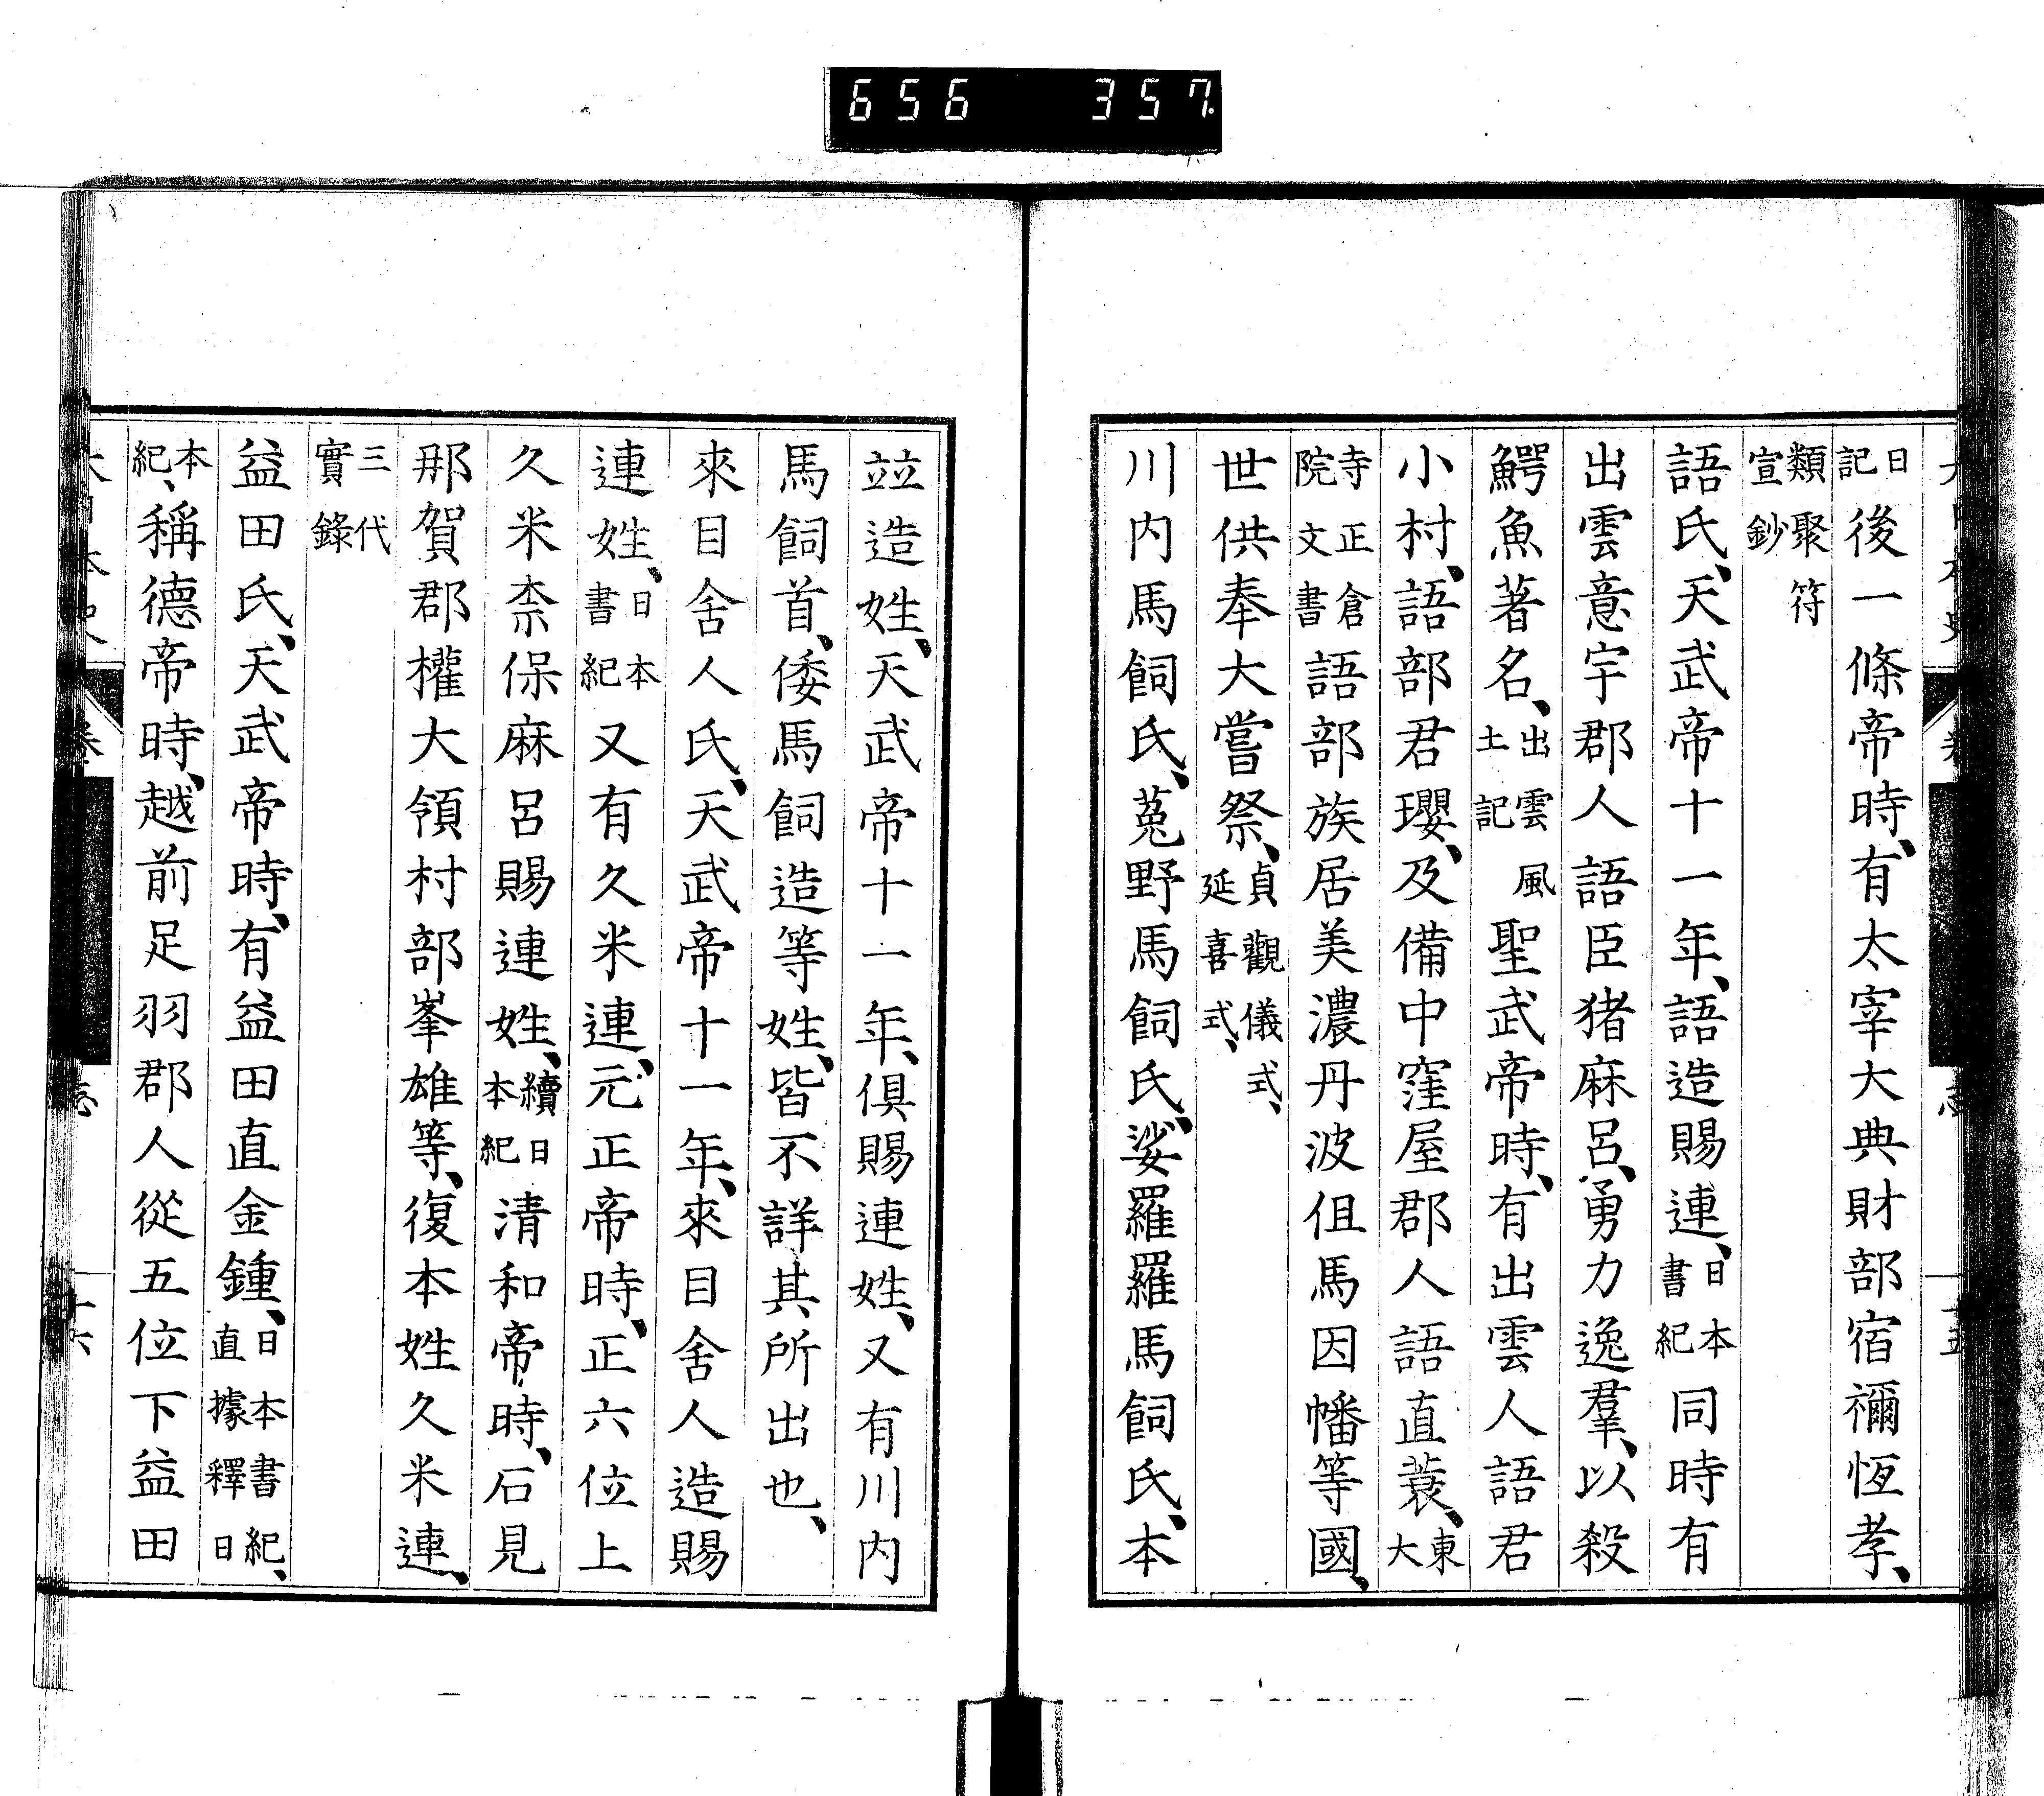 656 357
日記後一條帝時、有太宰大典財部宿禰恆孝、
類聚符宣鈔
語氏、天武帝十一年、語造賜連、日本書紀同時有
出雲意宇郡人語臣猪麻呂、勇力逸羣、以殺
鰐魚著名、出雲風土記聖武帝時、有出雲人語君
小村、語部君瓔、及備中窪屋郡人語直蓑、東大
寺正倉院文書語部族居美濃丹波伹馬因幡等國、
世供奉大嘗祭、貞觀儀式、延喜式、
川内馬飼氏、菟野馬飼氏、娑羅羅馬飼氏、本
竝造姓、天武帝十一年、俱賜連姓、又有川内
馬飼首、倭馬飼造等姓、皆不詳其所出也、
來目舍人氏、天武帝十一年、來目舍人造賜
連姓、日本書紀又有久米連、元正帝時、正六位上
久米柰保麻呂賜連姓、續日本紀清和帝時、石見
那賀郡權大領村部峯雄等、復本姓久米連、
三代實錄
益田氏、天武帝時、有益田直金鍾、日本書紀、直據釋日
本紀、稱德帝時、越前足羽郡人從五位下益田